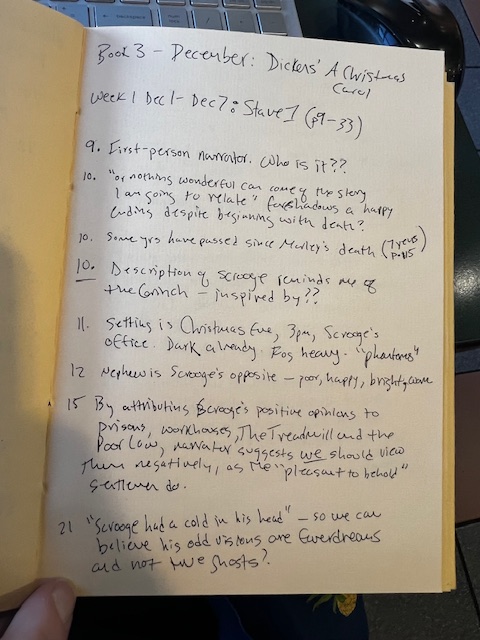 Book 3 – December: Dickens' A Christmas
Carol
Week 1 Dec 1 - Dec 7: Stave 1 (p9-33)
9. First-person narrator. Who is it??
10. "or nothing wonderful can come of the story
I am going to relate" foreshadows a happy
ending despite beginning with death?
10. Some yrs have passed since Marley's death (7 years
p.15)
10. Description of Scrooge reminds me of
the Grinch – inspired by??
11. Setting is Christmas Eve, 3pm, Scrooge's
office. Dark already. Fog heavy - "phantoms"
12 Nephew is Scrooge's opposite – poor, happy, bright, warm
15 By attributing Scrooge's positive opinions to
Prisons, workhouses, The Treadmill and the
Poor Law, narrator suggests we should view
them negatively, as the "pleasant to behold"
gentlemen do.
21 "Scrooge had a cold in his head" – so we can
believe his odd visions are feverdreams
and not true ghosts?